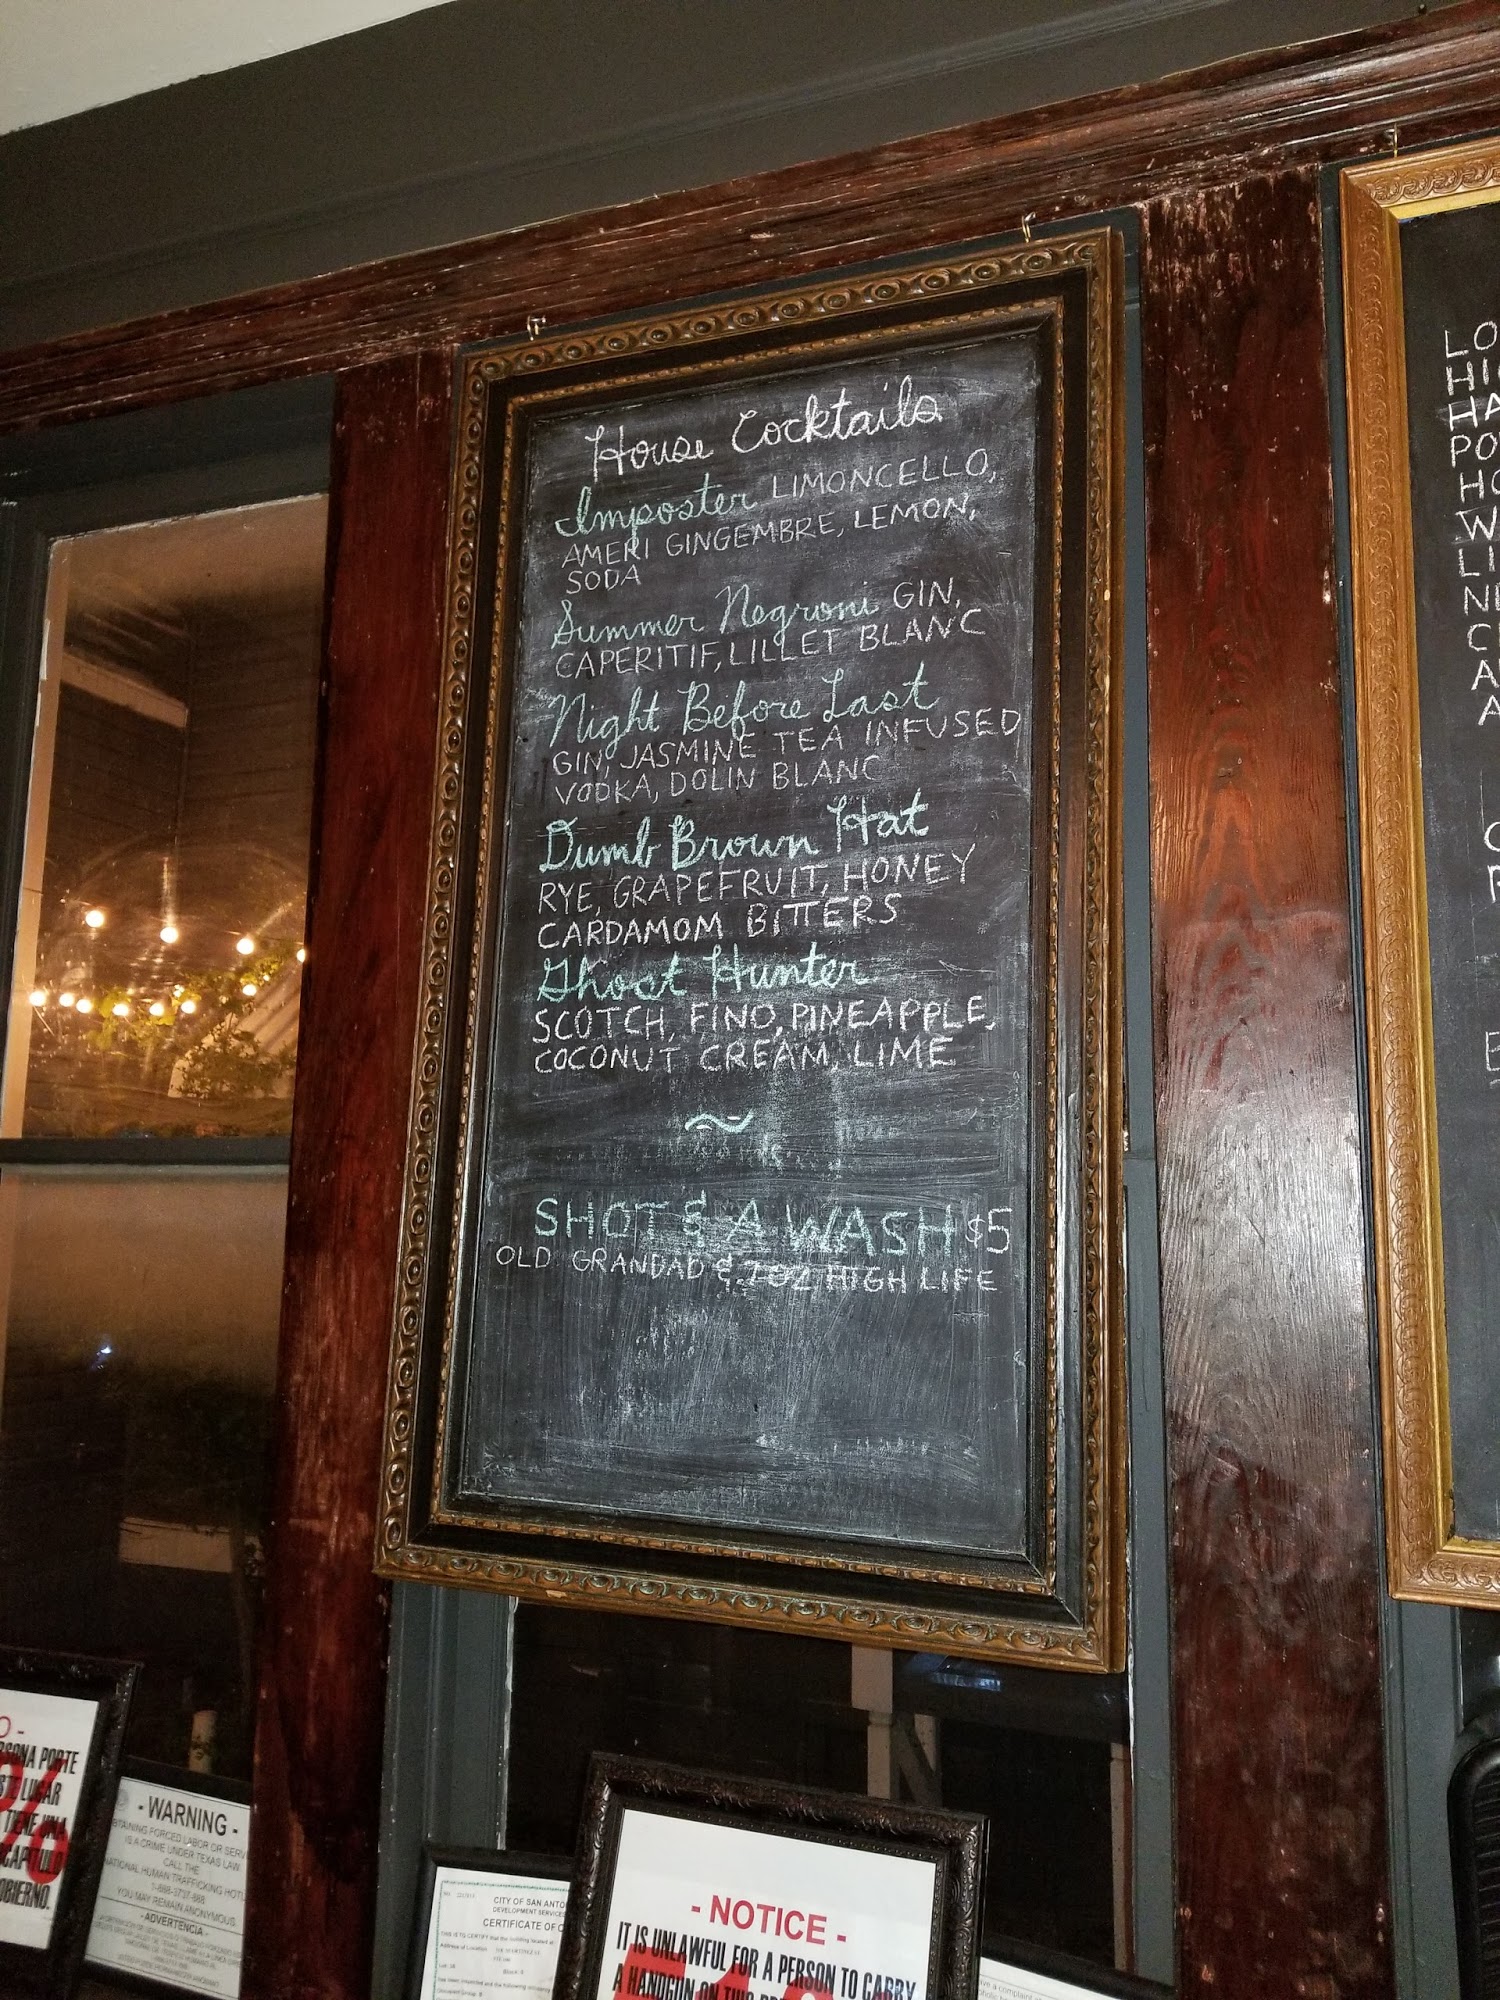 House Cocktails
Imposter LIMONCELLO,
AMERI GINGEMBRE, LEMON,
SODA
Summer Negroni GIN,
CAPERITIF, LILLET BLANC
Night Before Last
GIN, JASMINE TEA INFUSED
VODKA, DOLIN BLANC
Dumb Brown Hat
RYE, GRAPEFRUIT, HONEY
CARDAMOM BITTERS
Ghost Hunter
SCOTCH, FINO, PINEAPPLE,
COCONUT CREAM, LIME
~
SHOT & A WASH $5
OLD GRANDAD & 7oz HIGH LIFE
LO
HI
HA
PO
HO
W
LI
NE
C
A
A
O -
RSONA PORTE
STE LUGAR
TIENE UNA
CAPITULO
OBIERNO.
- WARNING -
BTAINING FORCED LABOR OR SERV
IS A CRIME UNDER TEXAS LAW.
CALL THE
NATIONAL HUMAN TRAFFICKING HOTL
1-888-3737-888.
YOU MAY REMAIN ANONYMOUS.
- ADVERTENCIA -
CITY OF SAN ANTO
DEVELOPMENT SERVICES
CERTIFICATE OF
THIS IS TO CERTIFY that the building located at
Address of Location
- NOTICE -
IT IS UNLAWFUL FOR A PERSON TO CARRY
A HANDGUN ON THIS
ve a complaint